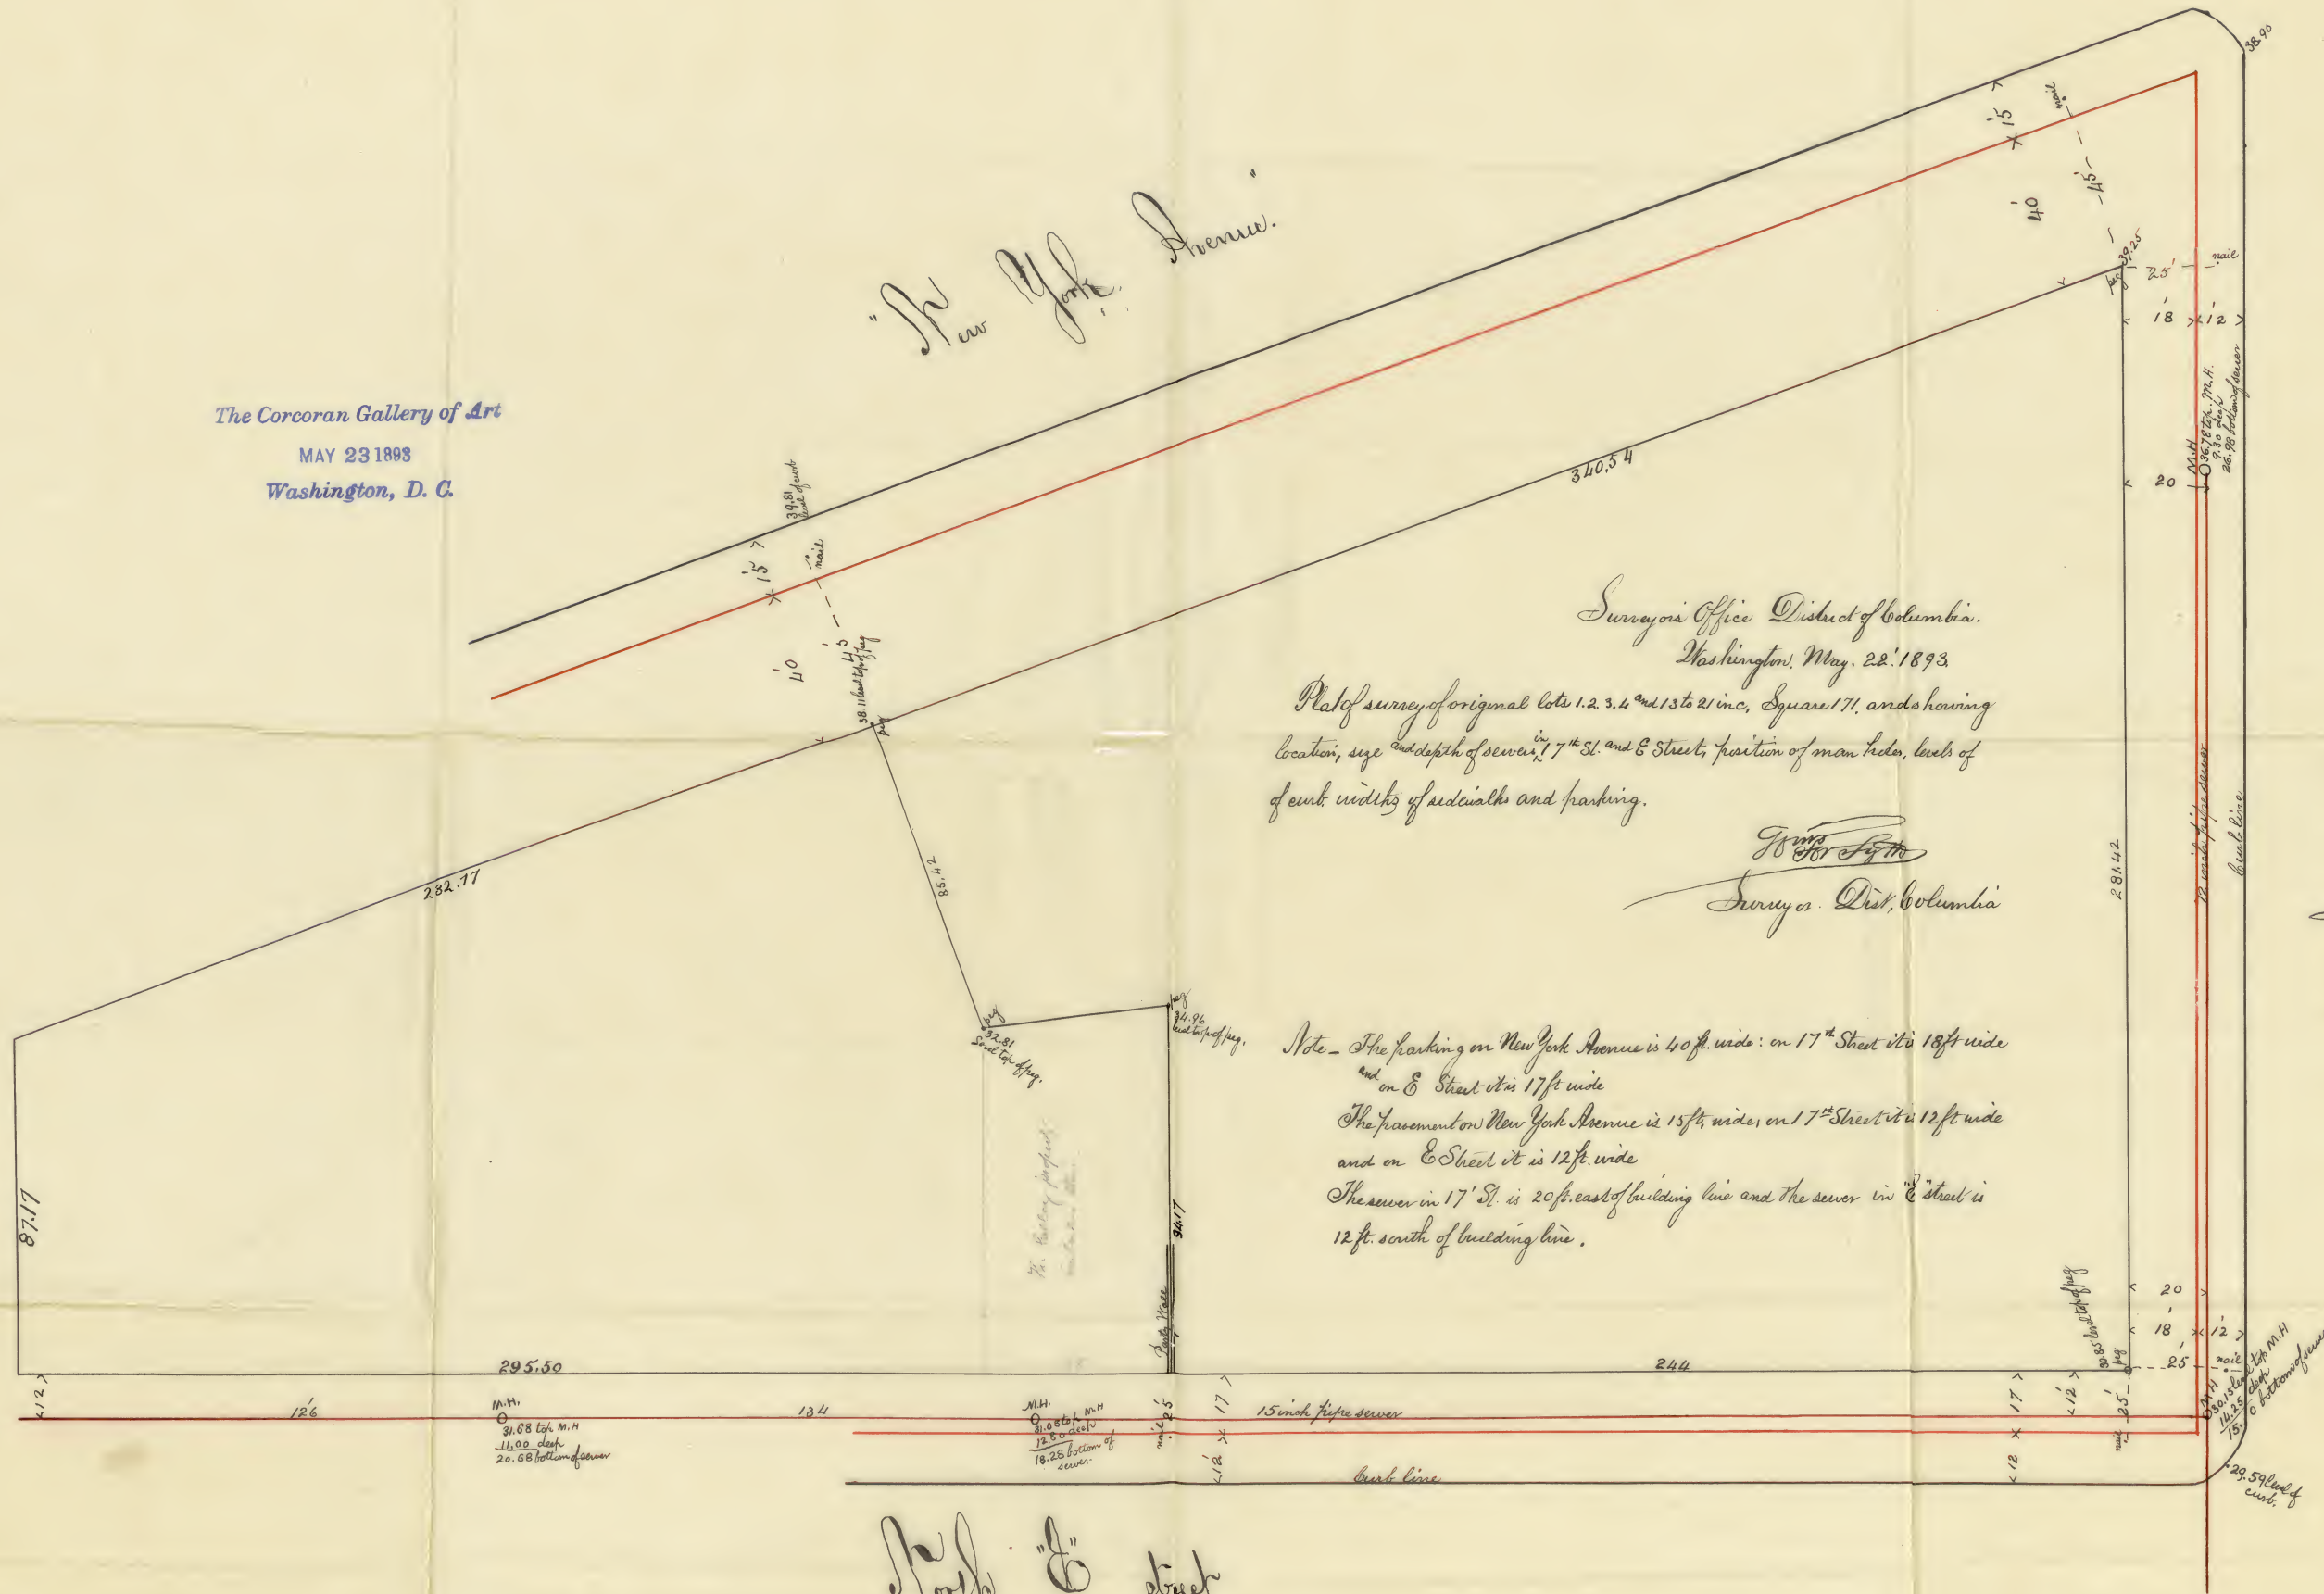 38.90
"New York Avenue."
15'
nail
40'
45'
39.25
peg
25'
nail
18'
12'
The Corcoran Gallery of Art
MAY 23 1893
Washington, D. C.
39.81
level of curb
15'
nail
40'
45'
38.11 level top of peg
peg
340.54
M.H
36.78 top. M.H.
9.80 deep
26.98 bottom of sewer
20
Surveyors Office District of Columbia.
Washington. May. 22' 1893.
Plat of survey of original lots 1. 2. 3. 4 and 13 to 21 inc, Square 171, and showing
location, size and depth of sewers, in 17th St. and E Street, position of man holes, levels of
of curb. widths of sidewalks and parking.
Surveyor. Dist, Columbia
232.77
85.42
281.42
12 inch pipe sewer
Curb line
peg
32.81
level top of peg.
peg
34.96
level top of peg.
Note – The parking on New York Avenue is 40 ft. wide: on 17th Street it is 18 ft wide
and on E Street it is 17 ft wide
The pavement on New York Avenue is 15 ft. wide, on 17th Street it is 12 ft wide
and on E Street it is 12 ft. wide
The sewer in 17' St. is 20 ft. east of building line and the sewer in "E" street is
12 ft. south of building line.
87.17
94.17
Party Wall
20
18'
12'
30.85 level top of peg
peg
25'
nail
295.50
244
12
126'
M.H.
31.68 top M.H
11.00 deep
20.68 bottom of sewer
134
M.H.
31.08 top M.H
12.80 deep
18.28 bottom of
sewer.
nail 25'
17
12'
15 inch pipe sewer
Curb line
17
12
12'
nail 25'
M.H
30.15 level top M.H
14.25 deep
bottom of sewer
29.59 level of
curb.
North "E" street